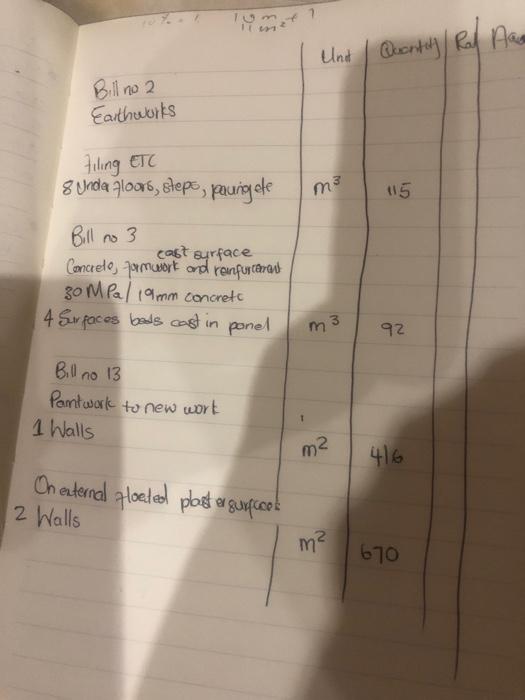 Unit Quantity Rat
Bill no 2
Earthworks
Filing ETC
8 Under floors, steps, paving etc m³ 115
Bill no 3
cast surface
Concrete, formwork and reinforcement
30 MPa/19mm concrete
4 Surfaces beds cast in panel m³ 92
Bill no 13
Paintwork to new work
1 Walls m² 416
On external floated plaster surfaces
2 Walls m² 670